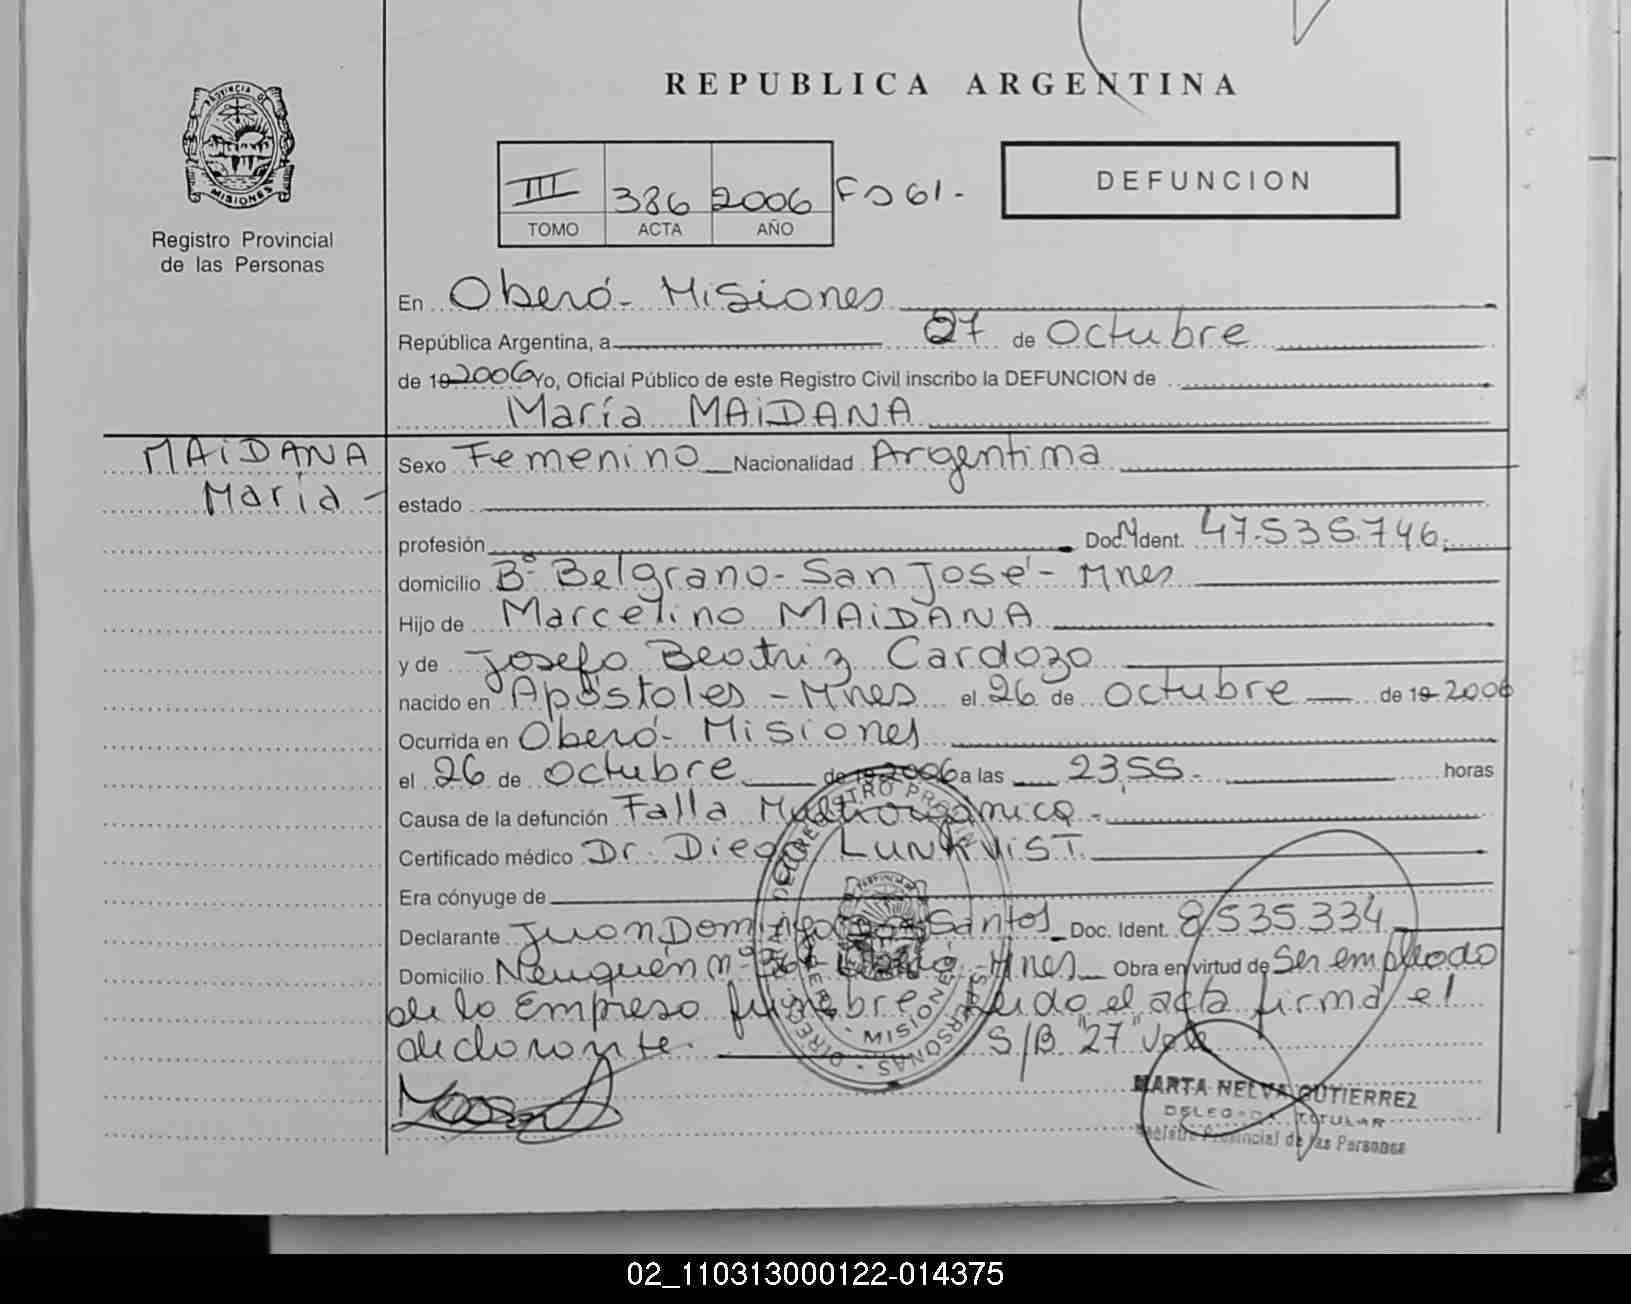 REPUBLICA ARGENTINA
PROVINCIA DE
MISIONES
Registro Provincial
de las Personas
III 386 2006 Fo 61-
TOMO ACTA AÑO
DEFUNCION
En Oberó - Misiones
República Argentina, a 27 de Octubre
de 19 2006 Yo, Oficial Público de este Registro Civil inscribo la DEFUNCION de
María MAIDANA
MAIDANA
María -
Sexo Femenino Nacionalidad Argentina
estado
profesión Doc. Ident. 47.535.746.
domicilio Bº Belgrano - San José - Mnes
Hijo de Marcelino MAIDANA
y de Josefa Beatriz Cardozo
nacido en Apóstoles - Mnes el 26 de octubre de 19 2006
Ocurrida en Oberó - Misiones
el 26 de octubre de 19 2006 a las 23,55. horas
Causa de la defunción Falla Multiorgánica -
Certificado médico Dr. Diego LUNKVIST.
Era cónyuge de
Declarante Juan Domingo Santos Doc. Ident. 8.535.334
Domicilio Neuquén nº Oberó - Mnes Obra en virtud de Ser empleado
de la Empresa fúnebre leido el acta firma el
declarante. S/B "27" Vale
MARTA NELVA GUTIERREZ
DELEGADA TITULAR
Registro Provincial de las Personas
02_110313000122-014375